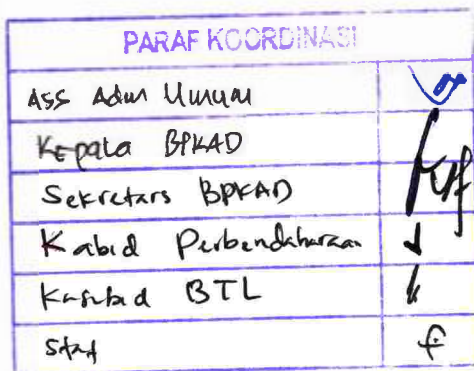 PARAF KOORDINASI
Ass Adm Umum
Kepala BPKAD
Sekretaris BPKAD
Kabid Perbendaharaan
Kasubid BTL
Staf